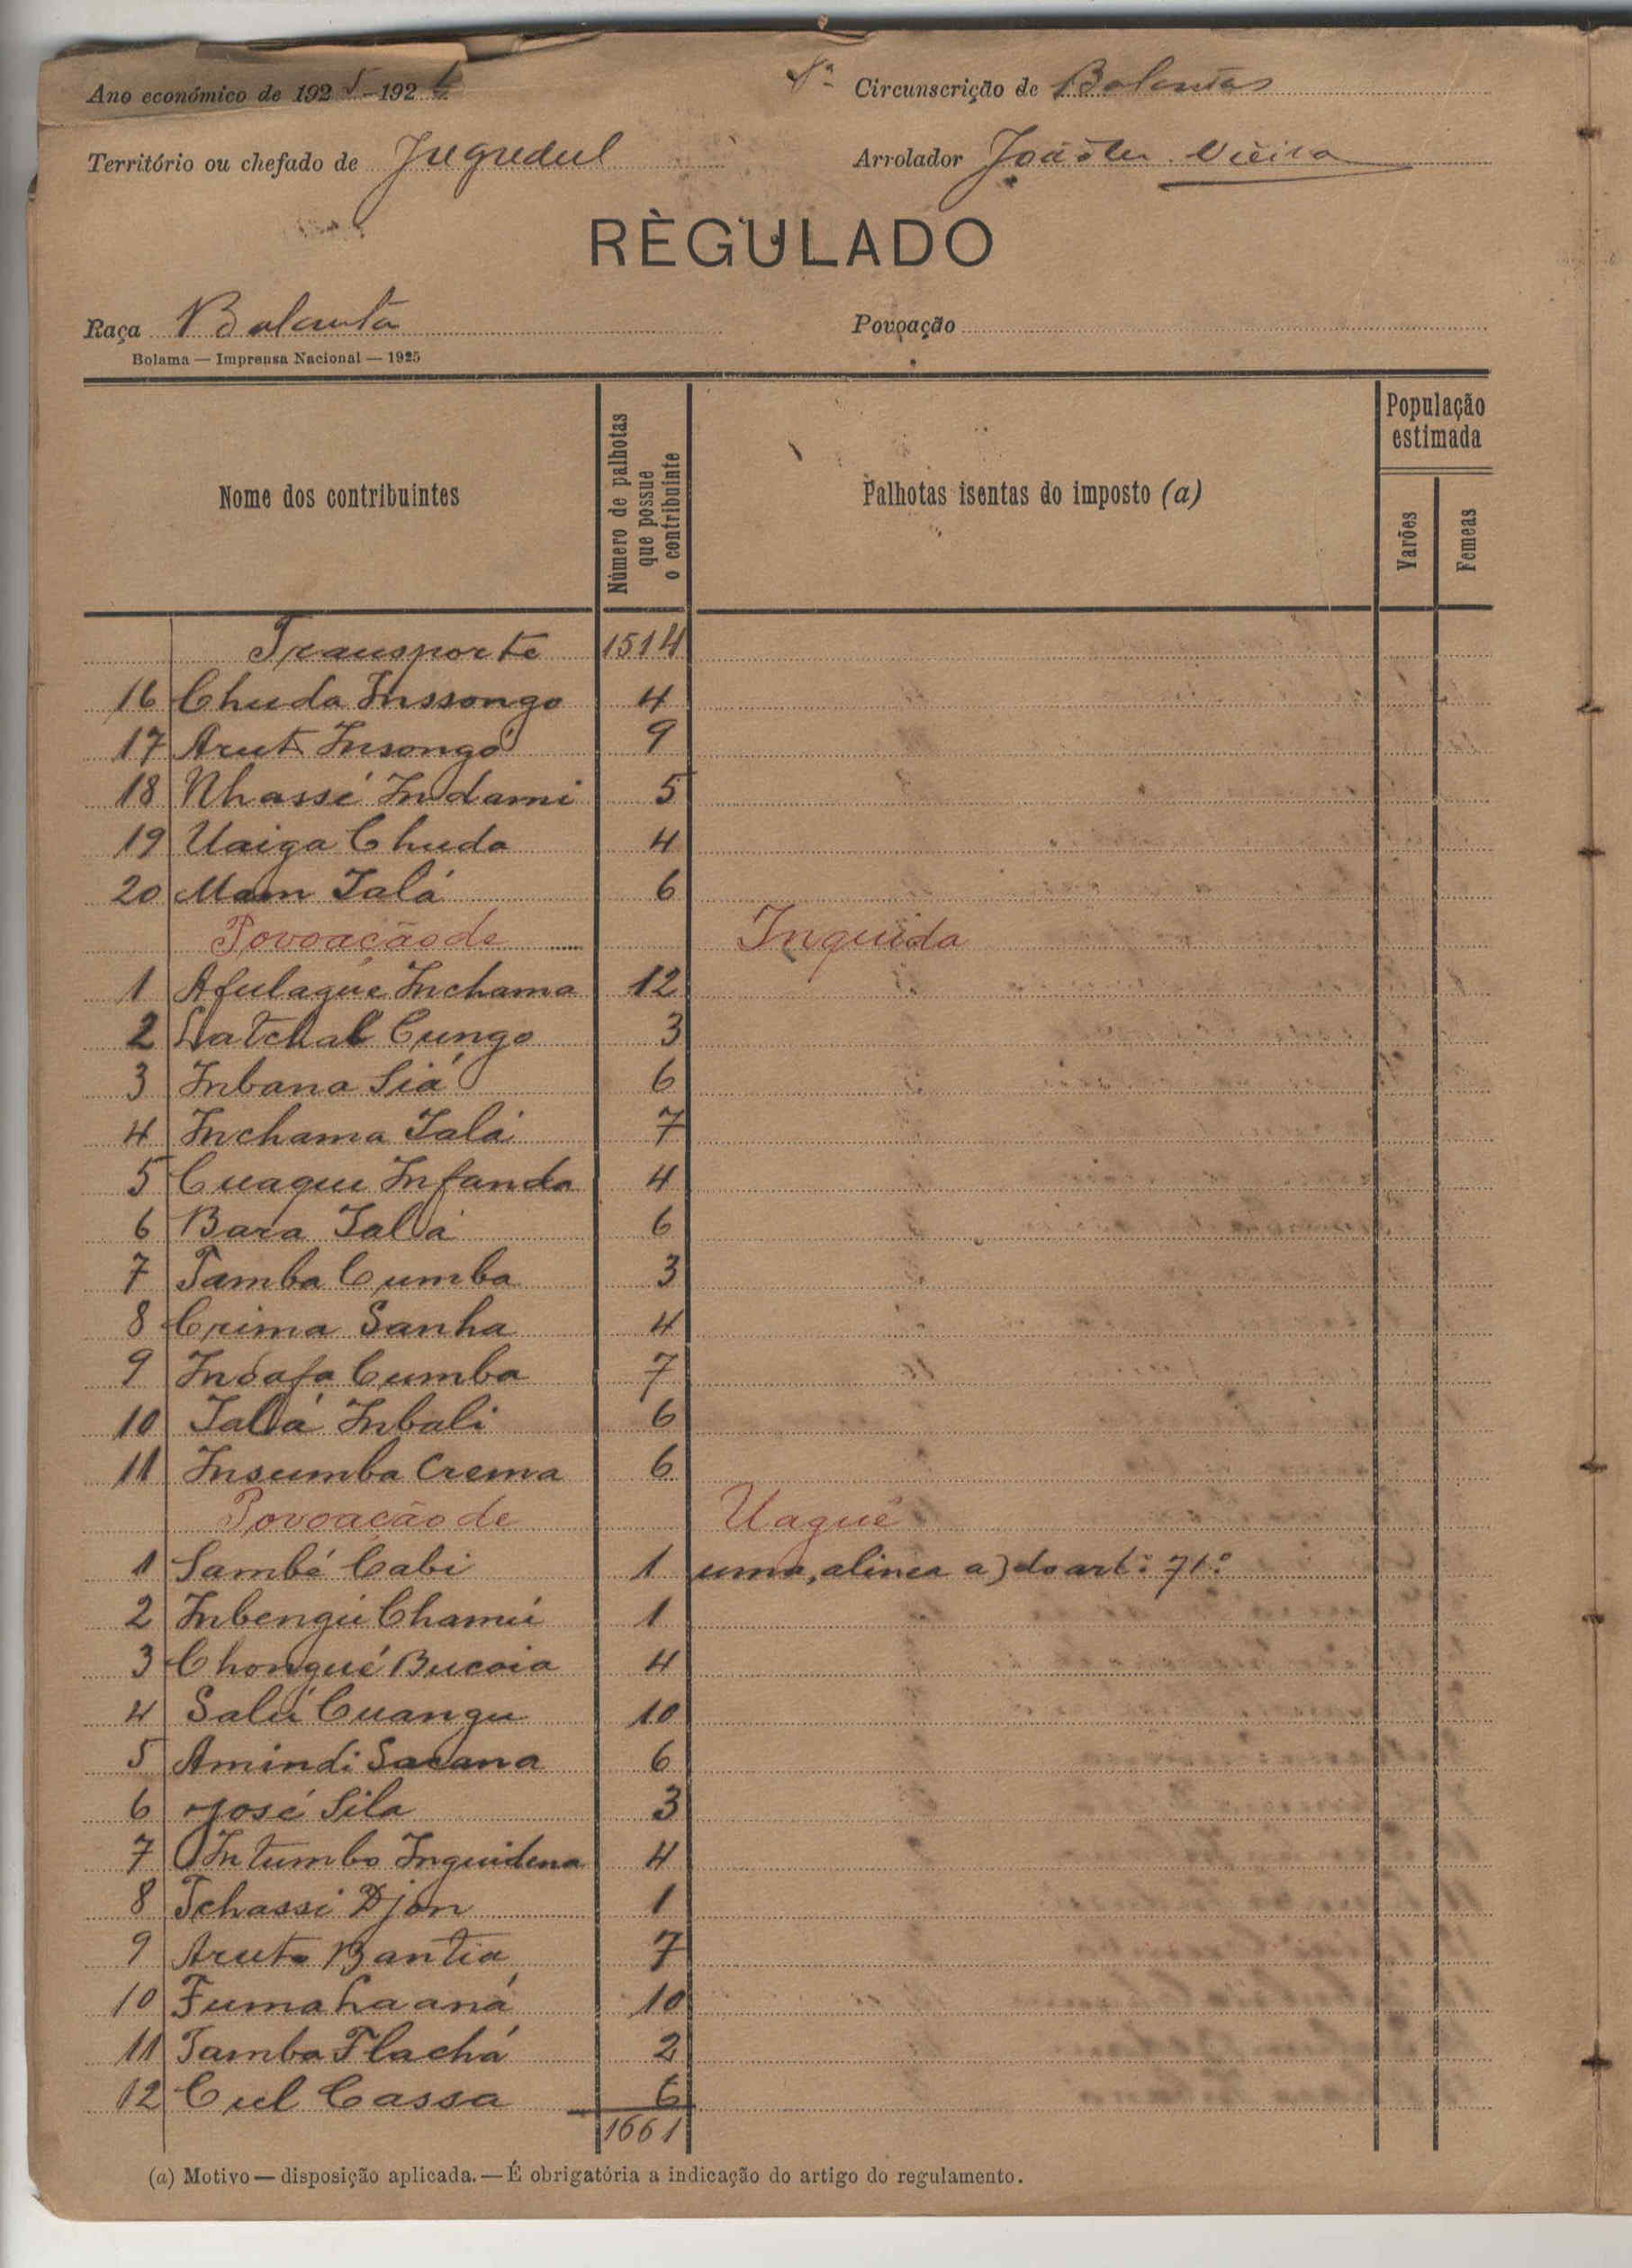 Ano económico de 1925-1926
8ª Circunscrição de Balantas
Território ou chefado de Jugudul
Arrolador João Vieira
RÈGULADO
Raça Balanta
Povoação
Bolama — Imprensa Nacional — 1925
Nome dos contribuintes
Número de palhotas que possue o contribuinte
Palhotas isentas do imposto (a)
População estimada
Varões
Femeas
Transporte 1514
16 Chuda Inssongo 4
17 Arut Insongó 9
18 Nhassé Indami 5
19 Uaiga Chuda 4
20 Mam Ialá 6
Povoação de Inquida
1 Afulague Inchama 12
2 Latchal Cungo 3
3 Inbana Siá 6
4 Inchama Ialá 7
5 Cuaque Infanda 4
6 Bara Ialá 6
7 Tamba Cumba 3
8 Crima Sanha 4
9 Indafa Cumba 7
10 Ialá Inbali 6
11 Insumba Crema 6
Povoação de Uaque
1 Sambé Cabi 1 uma, alinea a) do artº 71º
2 Inbengú Chamú 1
3 Chongué Bucoia 4
4 Salú Cuangu 10
5 Amindi Sacana 6
6 José Sila 3
7 Intumbo Inquidena 4
8 Tchassi Djon 1
9 Aruto Bantia 7
10 Fuma haaná 10
11 Tamba Flachá 2
12 Cul Cassa 6
1661
(a) Motivo — disposição aplicada. — É obrigatória a indicação do artigo do regulamento.